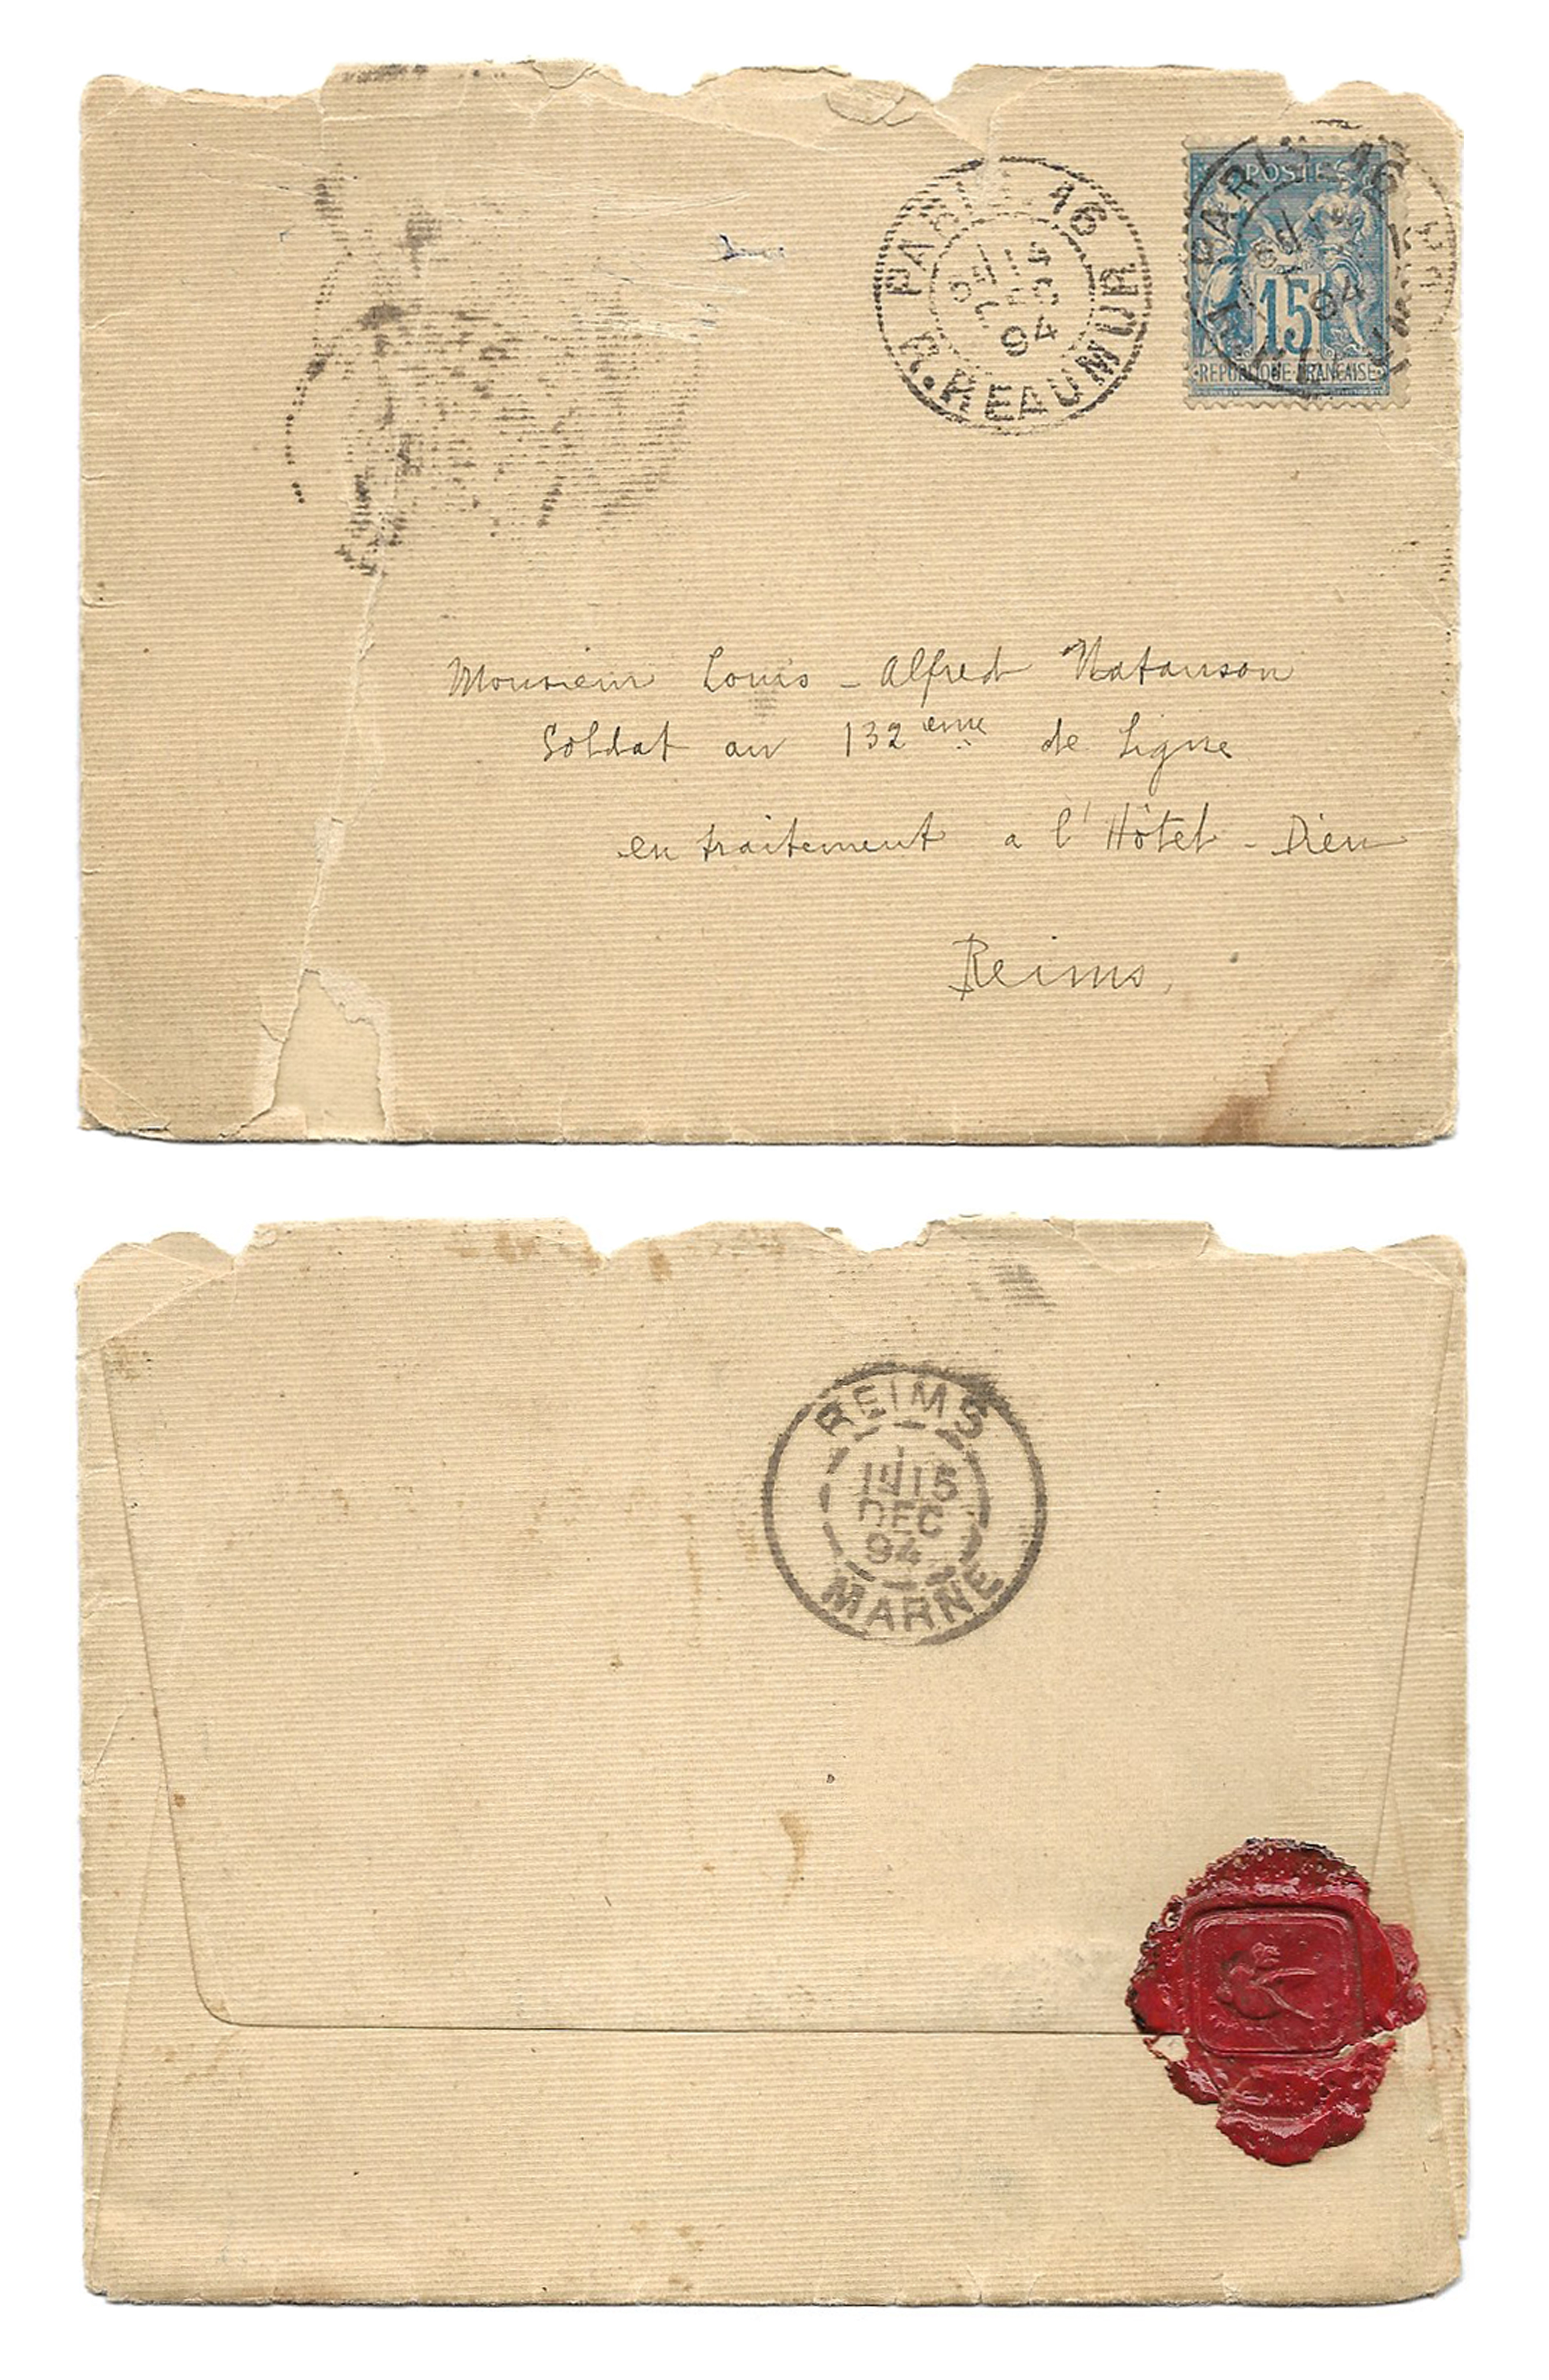 PARIS 16
R. REAUMUR
DEC
94
PARIS 16
94
POSTES
15
REPUBLIQUE FRANÇAISE
Monsieur Louis - Alfred Natanson
Soldat au 132 eme de Ligne
en traitement a l'Hôtel - Dieu
Reims,
REIMS
15
DEC
94
MARNE